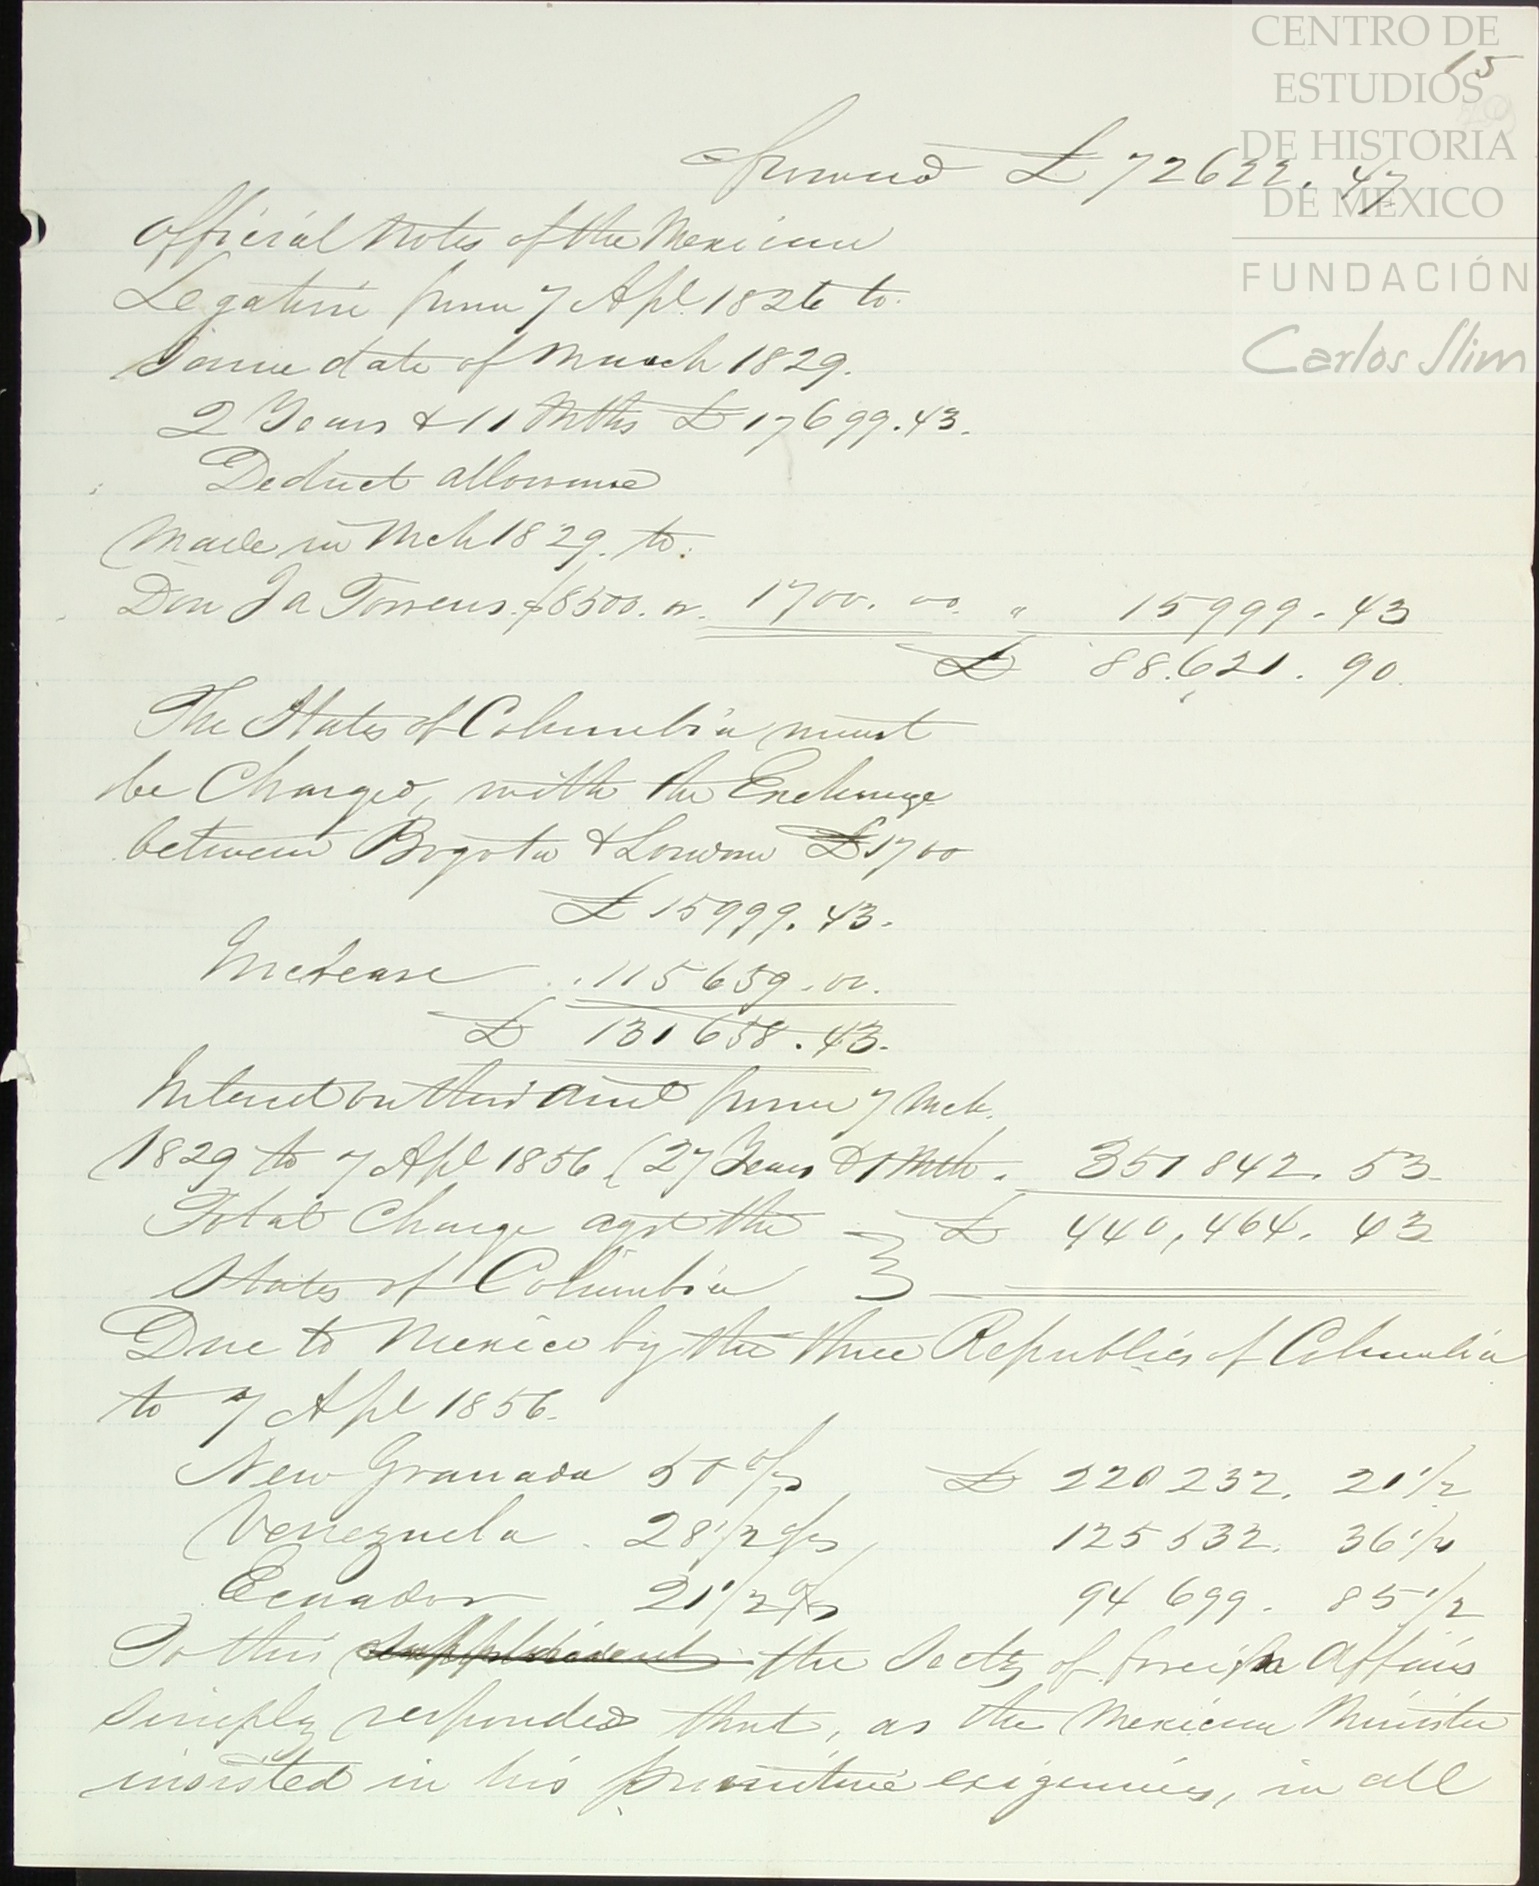 CENTRO DE
ESTUDIOS
DE HISTORIA
DE MEXICO
FUNDACIÓN
Carlos Slim
15
forward £ 72622. 47
Official Notes of the Mexican
Legation from 7 Apl. 1826 to
same date of March 1829.
2 Years & 11 Mths £ 17699.43.
Deduct allowance
Made in Mch 1829. to.
Don Ja Torrens. $8500. or. 1700. 00. " 15999. 43
£ 88.621. 90.
The States of Columbia must
be Charged, with the Exchange
between Bogota & London £1700
£ 15999. 43.
Increase . . 115659. 00.
£ 131658. 43.
Interest on this amt from 7 Mch.
1829 to 7 Apl 1856 (27 Years & 1 Mth. 351842. 53
Total Charge agst the £ 440,464. 43
States of Columbia
Due to Mexico by the three Republics of Columbia
to 7 Apl 1856.
New Granada 50 %s £ 220232. 21 1/2
Venezuela . 28 1/2 %s 125532. 36 1/2
Ecuador 21 1/2 %s 94 699. 85 1/2
To this the Secty of foreign Affairs
simply responded that, as the Mexican Minister
insisted in his primitive exigencies, in all